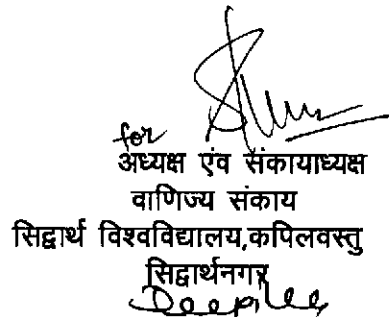 for
अध्यक्ष एंव संकायाध्यक्ष
वाणिज्य संकाय
सिद्वार्थ विश्वविद्यालय,कपिलवस्तु
सिद्वार्थनगर